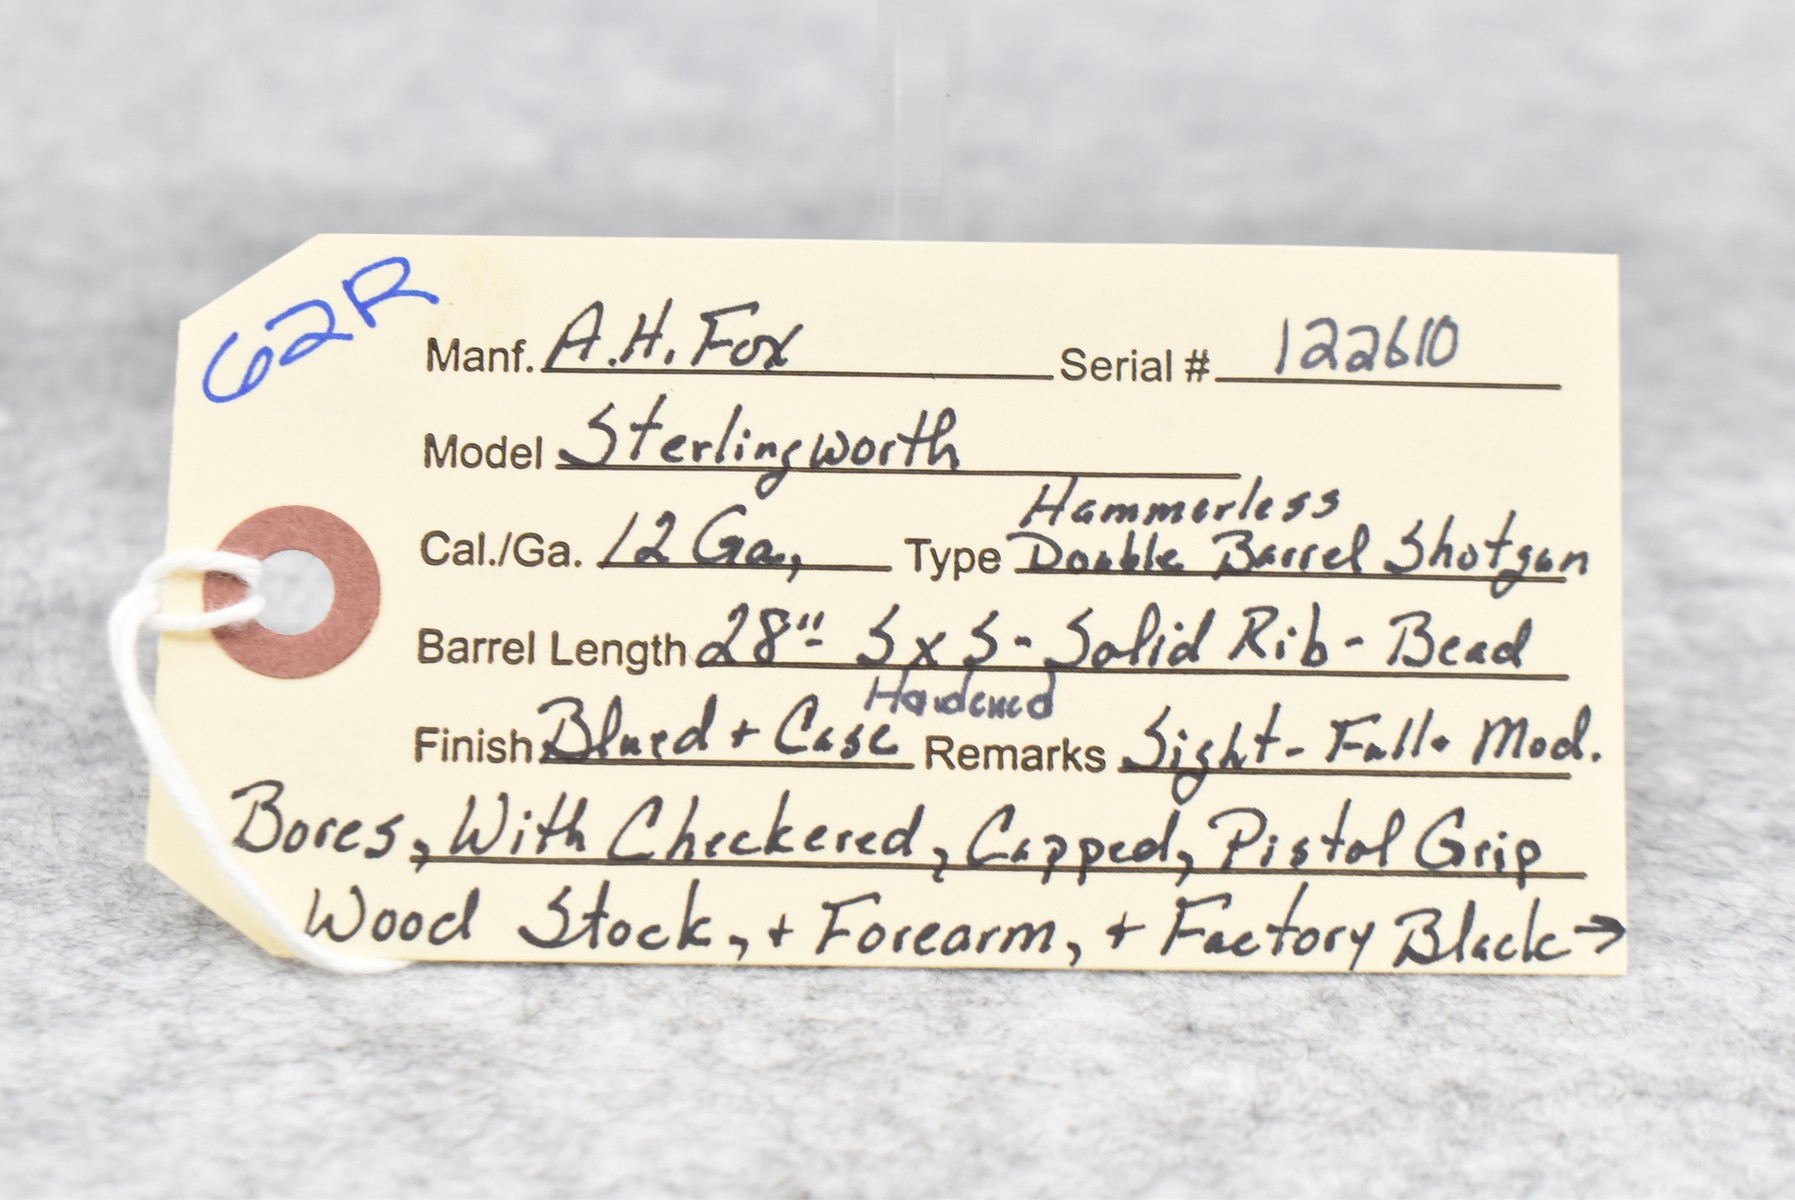 62R
Manf. A.H. Fox Serial # 122610
Model Sterlingworth
Hammerless
Cal./Ga. 12 Ga., Type Double Barrel Shotgun
Barrel Length 28"- S x S - Solid Rib - Bead
Hardened
Finish Blued + Case Remarks Sight - Full + Mod.
Bores, With Checkered, Capped, Pistol Grip
Wood Stock, + Forearm, + Factory Black →